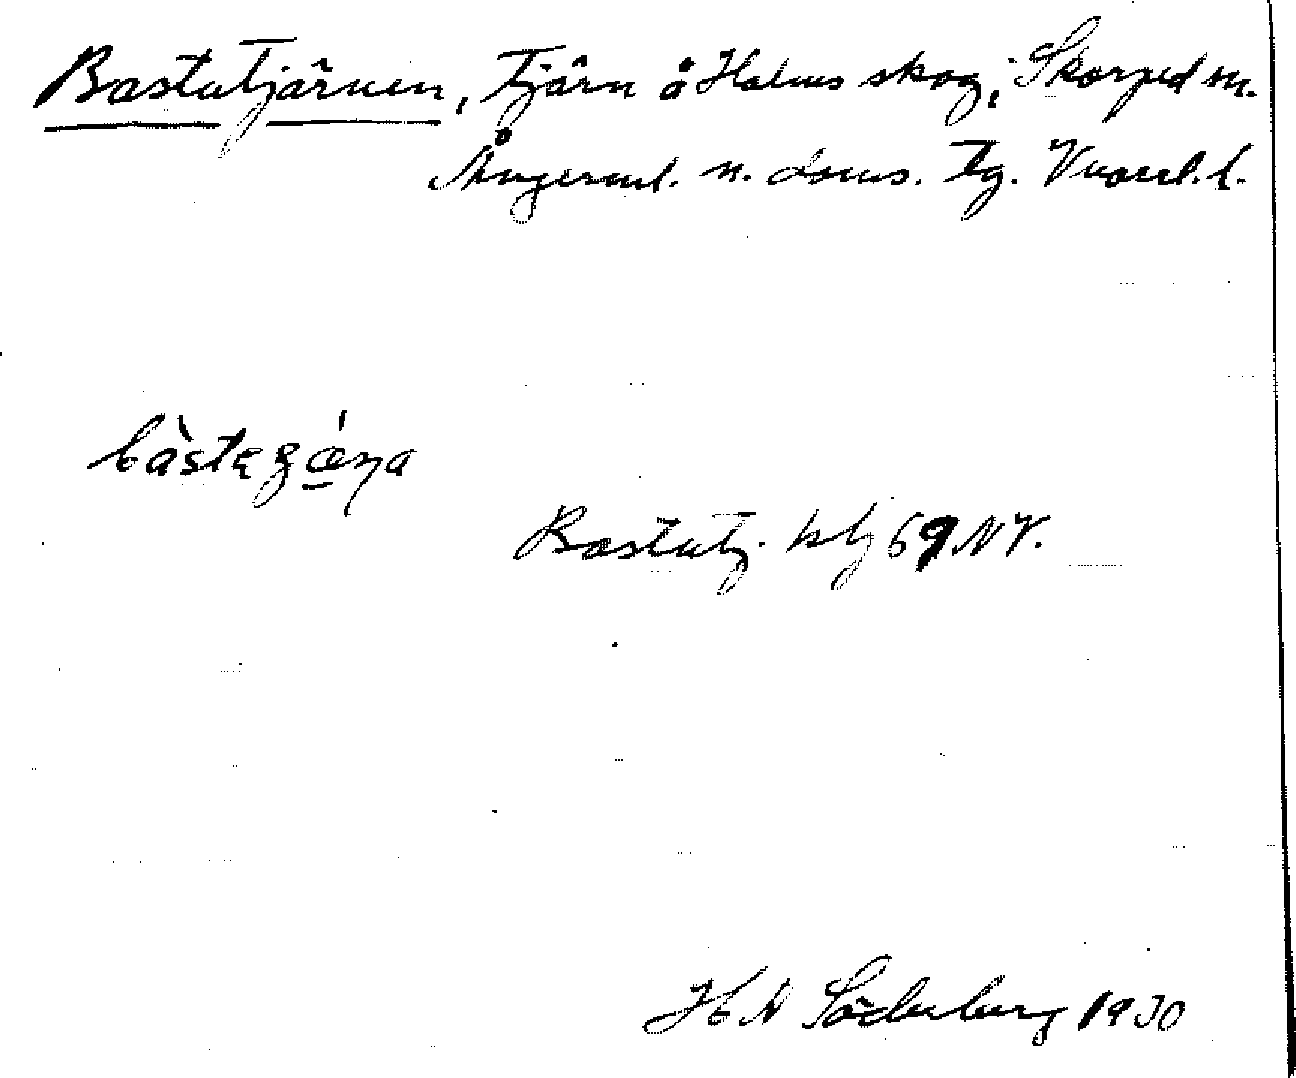 Bastutjärnen, Tjärn å Holms skog, Skorped sn.
Ångerml. n. doms. tg. Vnorrl. l.
Bastutj. kbl 69 NV.
H N Söderberg 1930